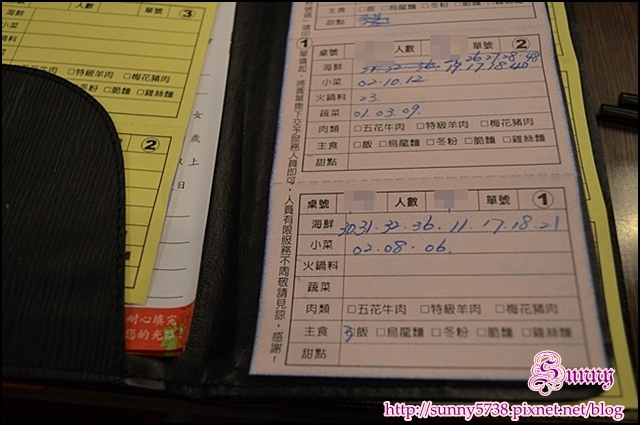 ③
單號
□冬粉 □脆麵 □雞絲麵
□特級羊肉 □梅花豬肉
②
女
歲
上
日
耐心填完
您的光臨!
□飯 □烏龍麵 □冬粉 □脆麵 □雞絲麵
甜點
① 單填起,將黃單撕下交予服務人員即可,人員有限服務不周敬請見諒,感謝!
桌號 人數 單號 ②
海鮮
小菜 02.10.12
火鍋料 23.
蔬菜 01.03.09.
肉類 □五花牛肉 □特級羊肉 □梅花豬肉
主食 □飯 □烏龍麵 □冬粉 □脆麵 □雞絲麵
甜點
桌號 人數 單號 ①
海鮮 30.31.32.36.11.17.18.21
小菜 02.08.06.
火鍋料
蔬菜
肉類 □五花牛肉 □特級羊肉 □梅花豬肉
主食 □飯 □烏龍麵 □冬粉 □脆麵 □雞絲麵
甜點
Sunny
http://sunny5738.pixnet.net/blog